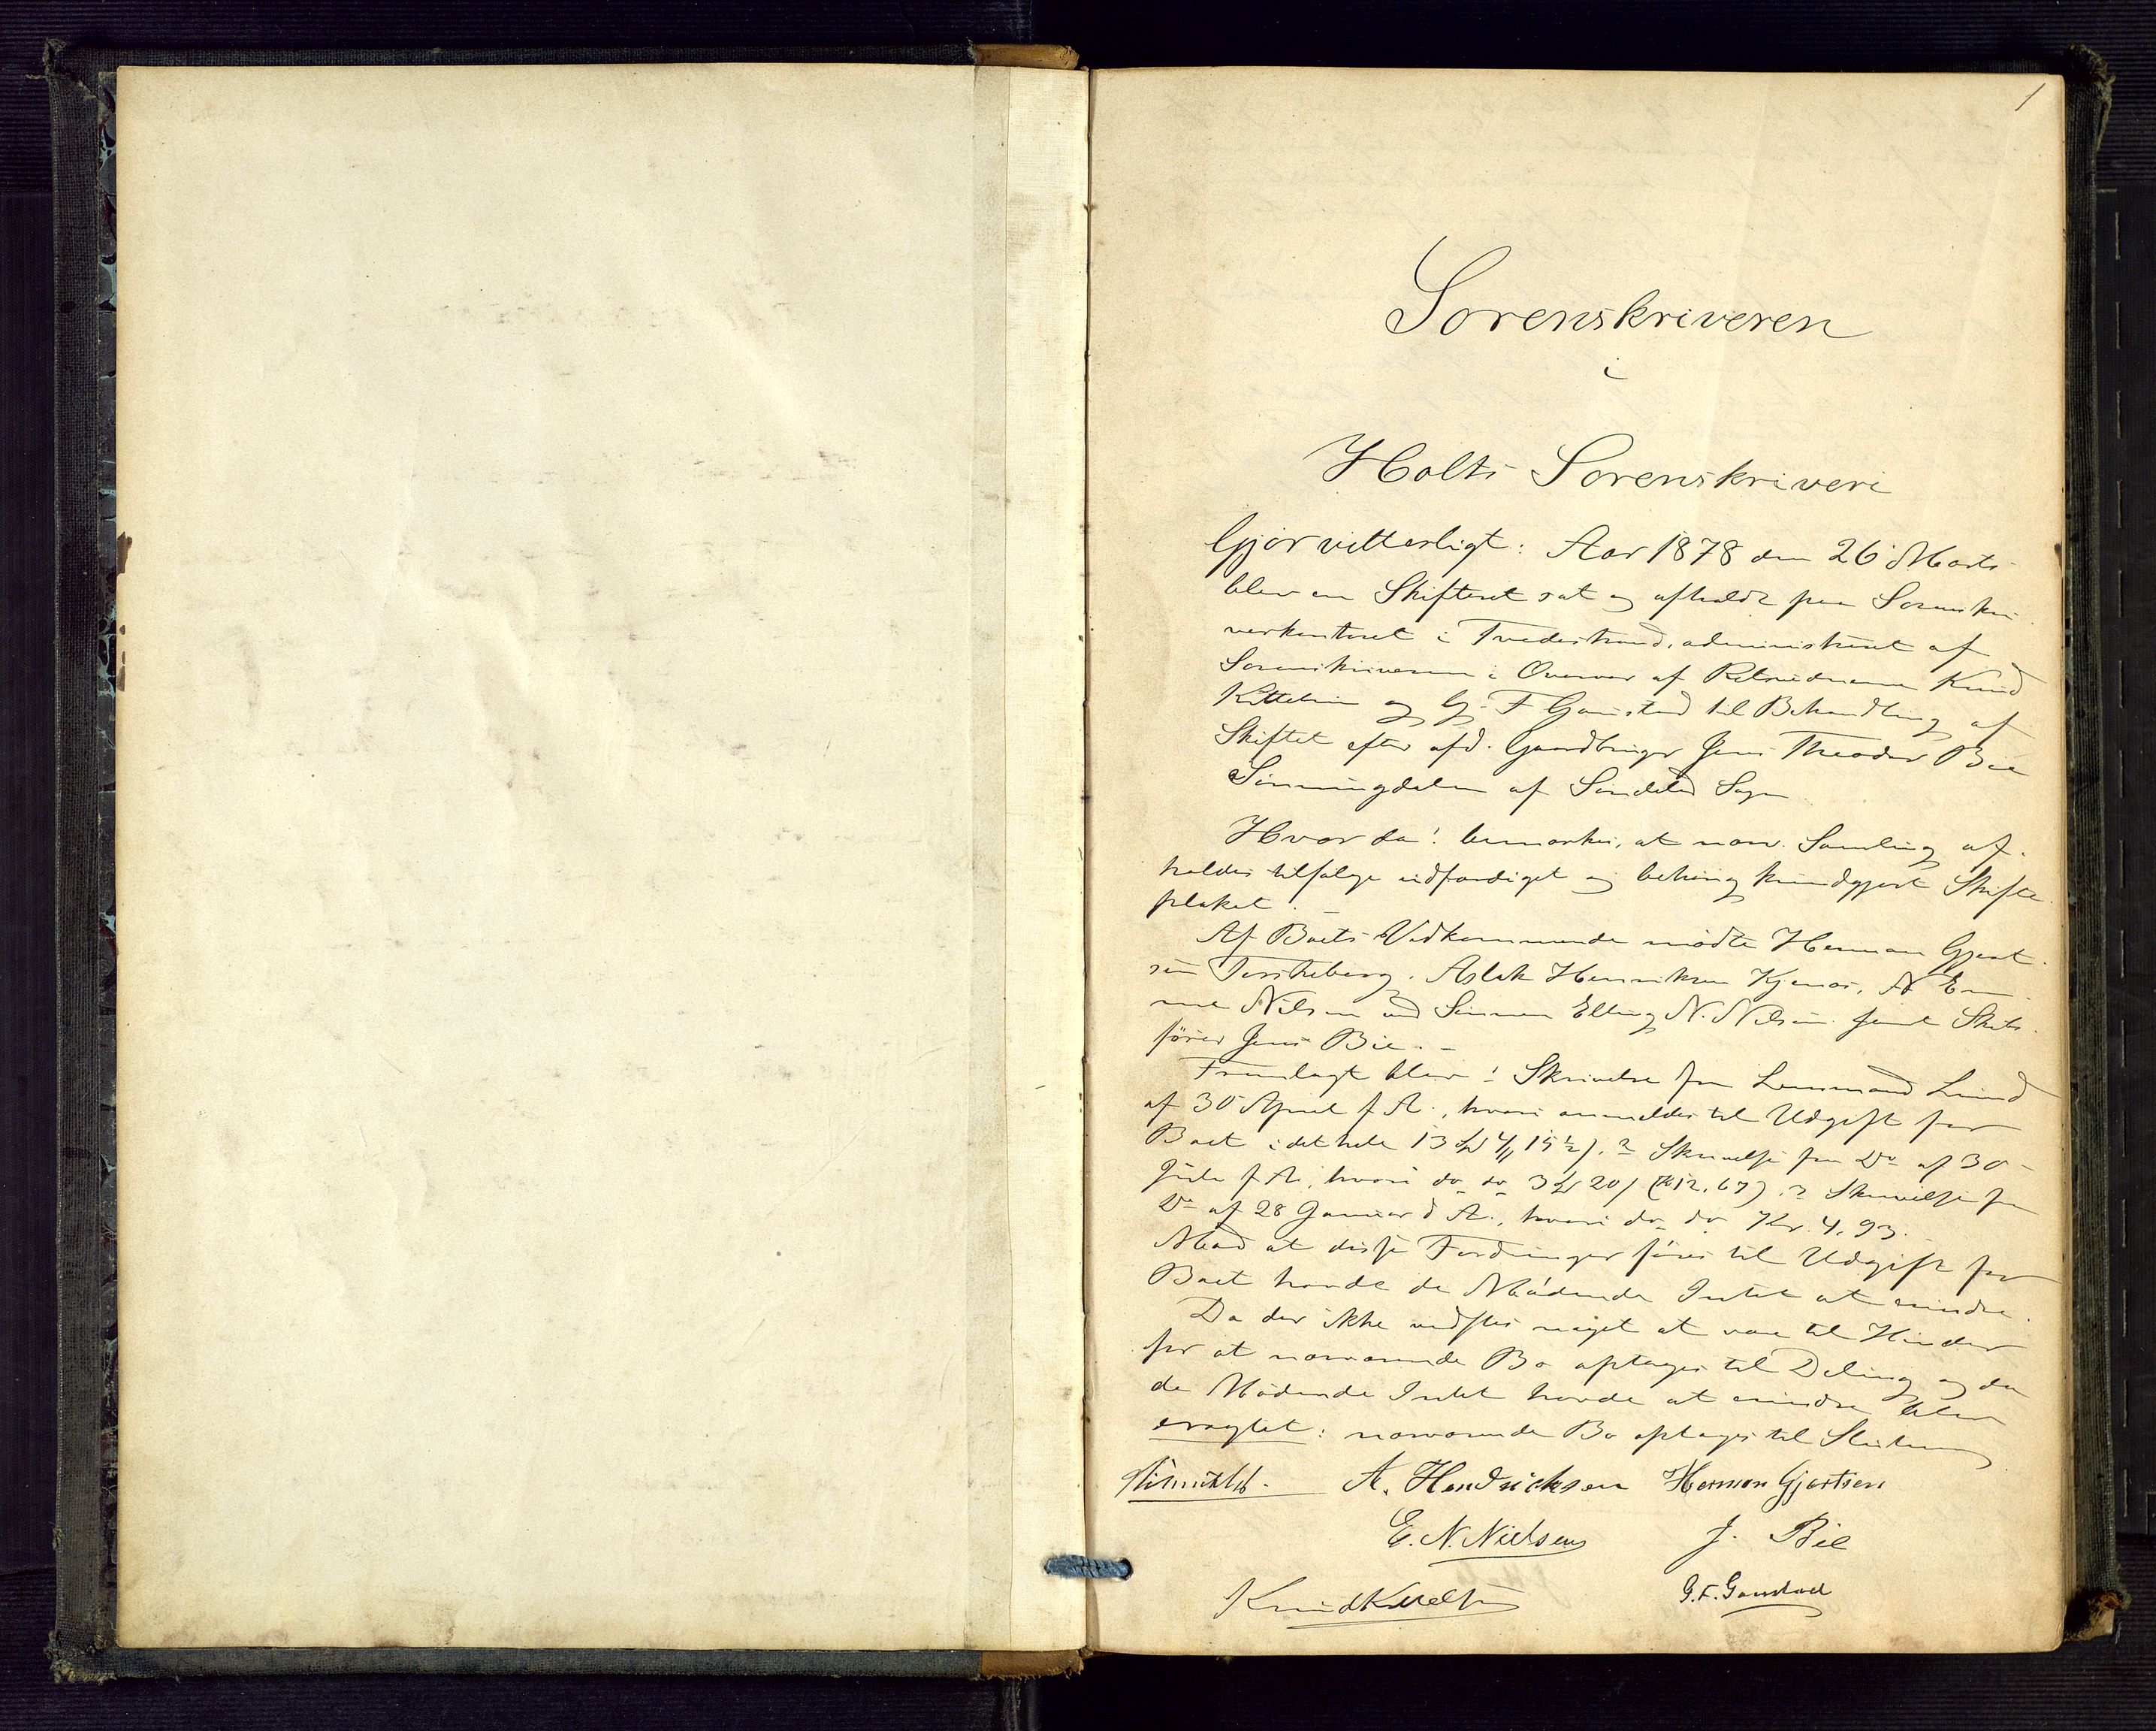 1
Sorenskriveren
i
Holts Sorenskriveri
Gjør vitterligt: Aar 1878 den 26 Marts
blev en Skifteret sat og afholdt paa Sorenskri
verkontoret i Tvedestrand, administreret af
Sorenskriveren i Overvær af Retsvidnerne Knud
Kittelsen og G. F. Gamstad til Behandling af
Skiftet efter afd. Gaardbruger Jens Theodor Bie
Sønningdalen af Søndeled Sogn
Hvor da! bemærkes, at nærv. Samling af-
holdes tilfølge udfærdiget og behørig kundgjort Skifte
plakat.
Af Boets Vedkommende mødte Herman Gjert
sen Torskeberg, Aslak Henriksen Kjenes, N. En
me Nilsen ved Sønnen Elling N. Nilsen samt Skibs
fører Jens Bie. –
Fremlagt blev: 1 Skrivelse fra Lensmand Lund
af 30 April f. A., hvori anmeldes til Udgift for
Boet i det hele 13 4 15½, 2 Skrivelse fra Do af 30
Juli f A., hvori do do 3 20 (Kr 12,67), 3 Skrivelse fra
Do af 28 Januar d. A., hvori do do Kr. 4,93.
Mod at disse Fordringer føres til Udgift for
Boet havde de Mødende Intet at erindre.
Da der ikke vidstes noget at være til Hinder
for at nærværende Bo optages til Deling og da
de Mødende Intet havde at erindre blev
eragtet: nærværende Bo optages til Slutning
A. Hendricksen Herman Gjertsen
E. N. Nielsen J. Bie
Knud Kittelsen G. F. Gamstad